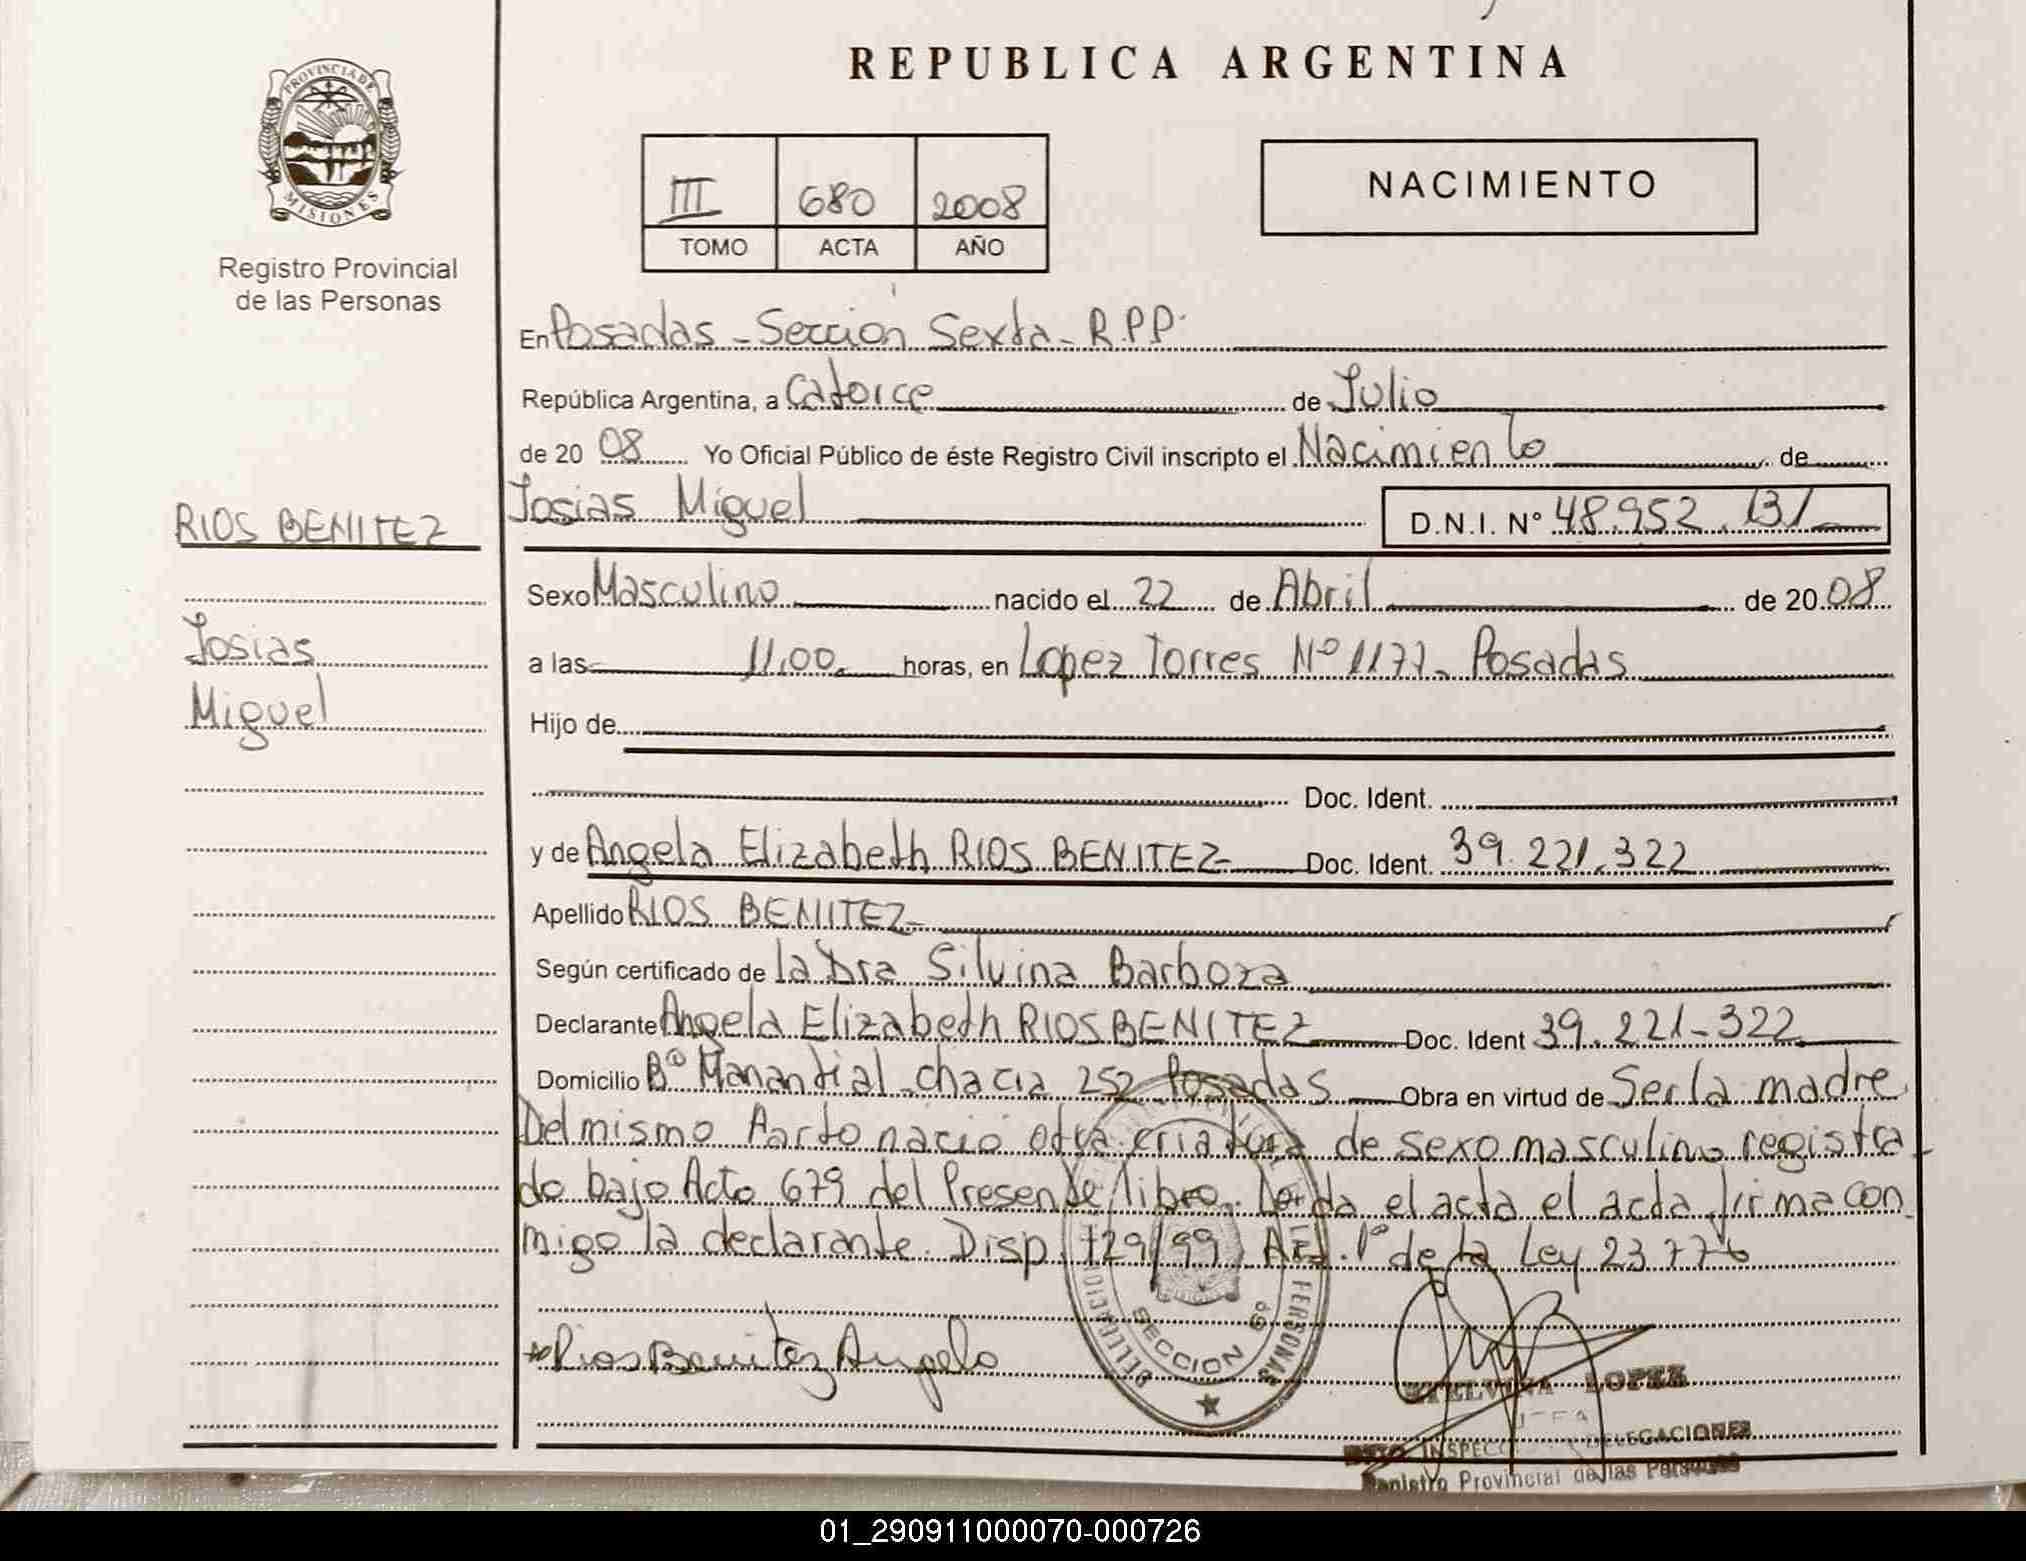 REPUBLICA ARGENTINA
PROVINCIA DE
MISIONES
Registro Provincial
de las Personas
III 680 2008
TOMO ACTA AÑO
NACIMIENTO
En Posadas - Sección Sexta - R.P.P.
República Argentina, a Catorce de Julio
de 20 08 Yo Oficial Público de éste Registro Civil inscripto el Nacimiento de
RIOS BENITEZ
Josias Miguel D.N.I. Nº 48.952.131
Sexo Masculino nacido el 22 de Abril de 20 08
Josias
a las 11.00 horas, en Lopez Torres Nº 1177 - Posadas
Miguel
Hijo de
Doc. Ident.
y de Angela Elizabeth RIOS BENITEZ Doc. Ident. 39.221.322
Apellido RIOS BENITEZ
Según certificado de la Dra Silvina Barboza
Declarante Angela Elizabeth RIOS BENITEZ Doc. Ident 39.221-322
Domicilio Bº Manantial - chacra 252 Posadas Obra en virtud de Ser la madre
Del mismo Parto nació otra criatura de sexo masculino registra-
do bajo Acta 679 del Presente libro. Leída el acta el acta firma con
migo la declarante. Disp. 129/99 Art. 1º de la Ley 23.776
Rios Benitez Angela
SECCION 6º
PERSONAS
ETELVINA LOPEZ
JEFA
INSPEC DELEGACIONES
Registro Provincial de las Personas
01_290911000070-000726